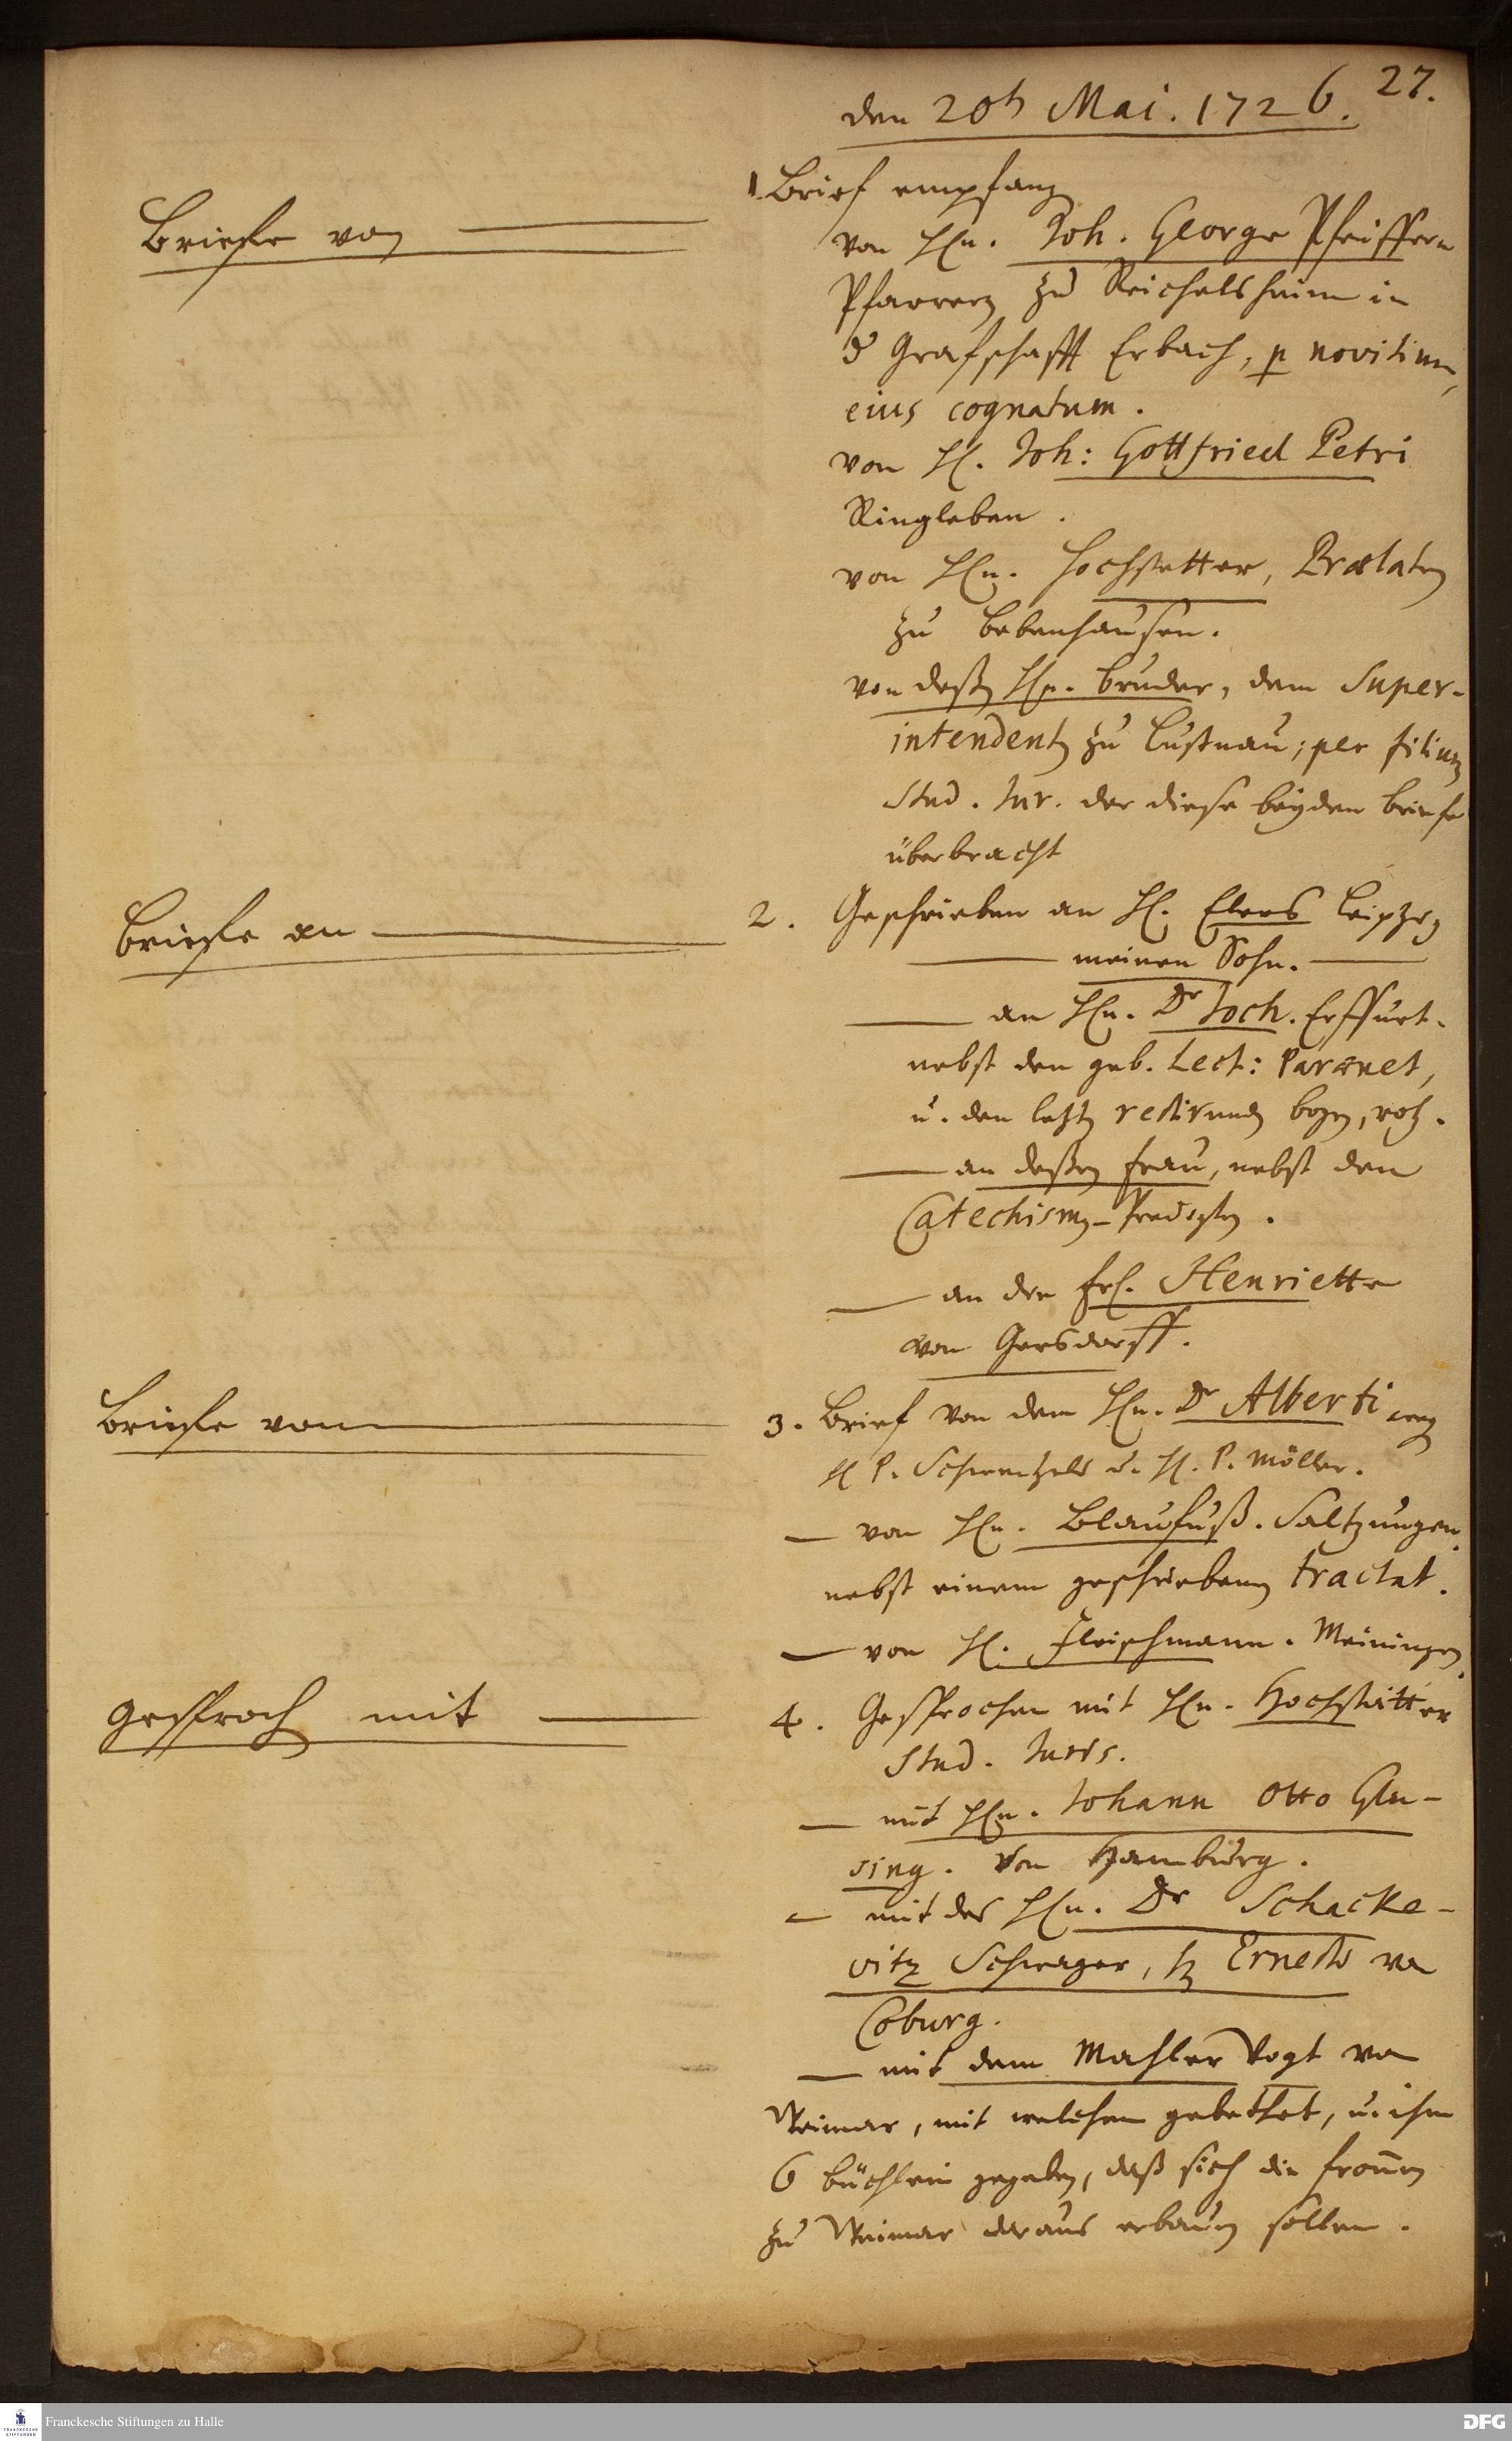 27.
den 20t Mai. 1726.
Briefe von
1. Brief empfang
von Hn. Joh. George Pfeiffern
Pfarrern zu Reichelsheim in
d Grafschafft Erbach, p novitium,
eius cognatum.
von H. Joh: Gottfried Petri
Ringleben.
von Hn. Hochstetter, Prælaten
zu Bebenhausen.
von deßen Hn. Bruder, dem Super-
intendent zu Lustnau; per filium
Stud. Jur. der diese beyden Briefe
überbracht
Briefe an
2. Geschrieben an H. Elers Leipzig
meinen Sohn.
an Hn. Dr Joch. Erffurt.
nebst den geb. Lect: Parænet,
u. den letzten restirenden bogen, roh.
an deßen Frau, nebst den
Catechismus-Predigten.
an die Frl. Henriette
von Gersdorff.
Briefe von
3. Brief von dem Hn. Dr Alberti weg
H P. Schwentzels u. H. P. Möller.
von Hn. Blaufuß. Saltzungen.
nebst einem geschriebenen tractat.
von H. Fleischmann. Meiningen.
Gespräch mit
4. Gesprochen mit Hn. Hochstetter
Stud. Juris.
mit Hn. Johann Otto Glu-
sing. Von Hamburg.
mit des Hn. Dr Schacke-
vitz Schwager, H Ernesto von
Coburg.
mit dem Mahler Vogt von
Weimar, mit welchem gebethet, u. ihm
6 büchlein gegeben, daß sich die frommen
zu Weimar daraus erbauen sollen.
Franckesche Stiftungen zu Halle
DFG